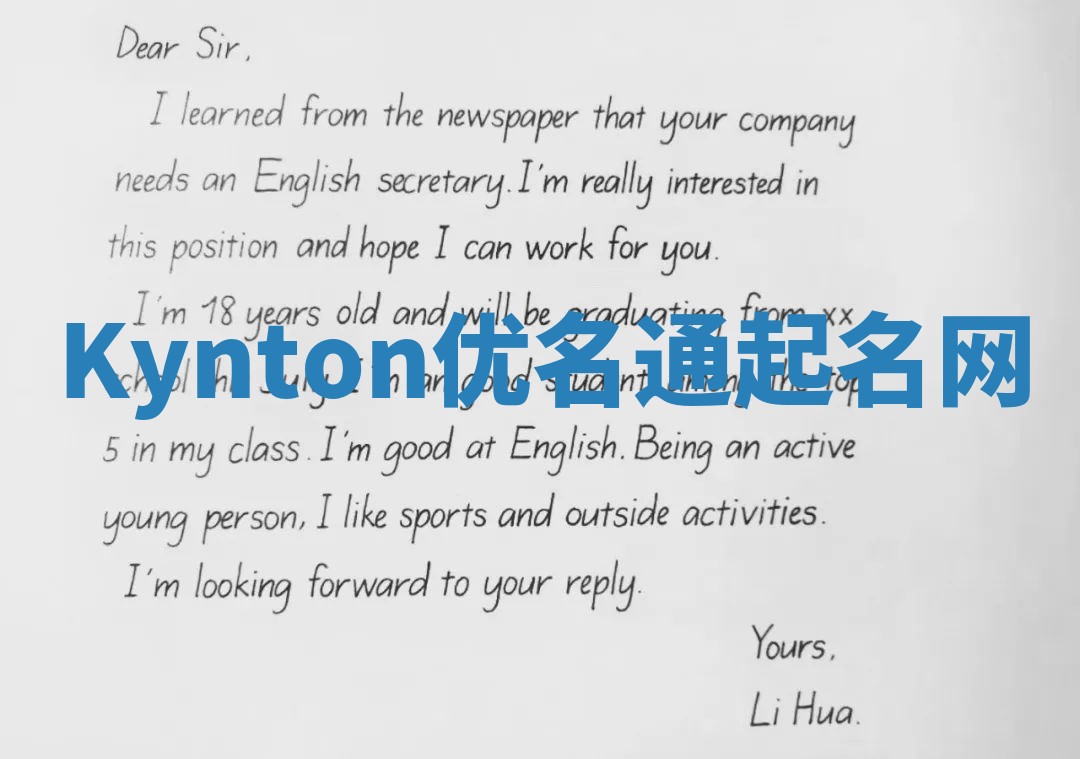 Dear Sir,
I learned from the newspaper that your company
needs an English secretary. I'm really interested in
this position and hope I can work for you.
I'm 18 years old and will be graduating from xx
Kynton优名通起名网
school this July. I'm an good student among the top
5 in my class. I'm good at English. Being an active
young person, I like sports and outside activities.
I'm looking forward to your reply.
Yours,
Li Hua.